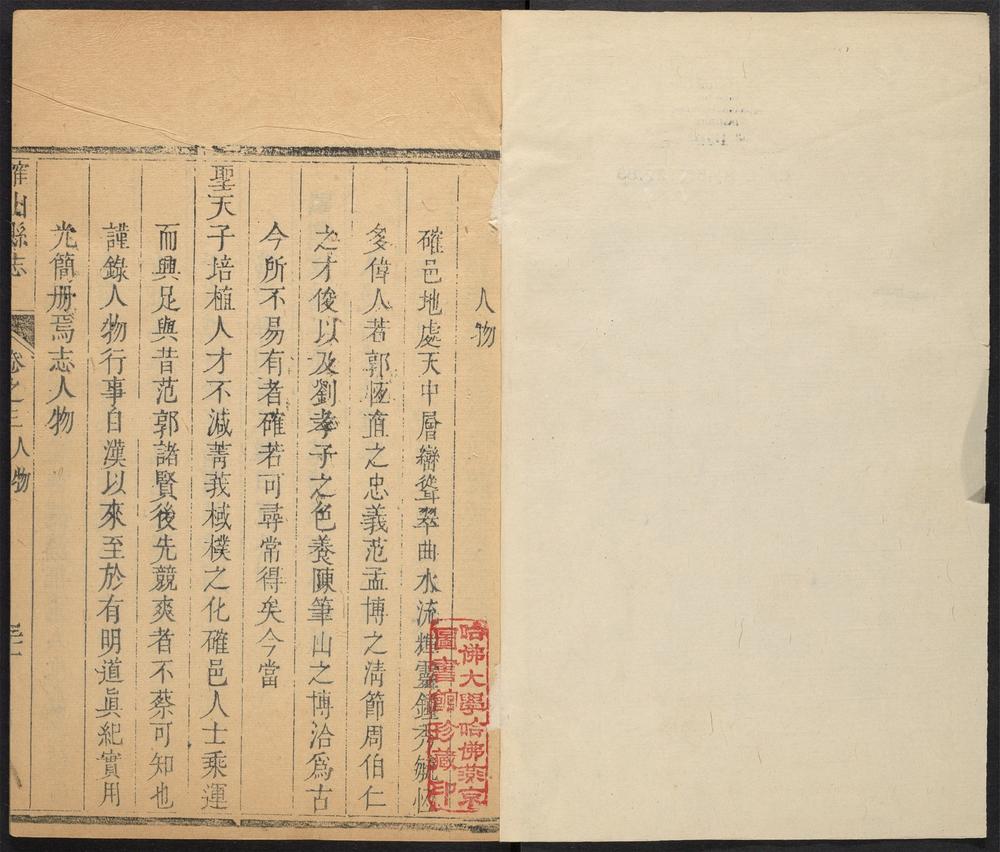 人物
確邑地處天中層巒聳翠曲水流輝靈鍾秀毓恆
多偉人若郭恆直之忠義范孟博之清節周伯仁
之才俊以及劉孝子之色養陳筆山之博洽為古
今所不易有者確若可尋常得矣今當
聖天子培植人才不減菁莪棫樸之化確邑人士乘運
而興足與昔范郭諸賢後先競爽者不蔡可知也
謹錄人物行事自漢以來至於有明道眞紀實用
光簡册焉志人物
確山縣志 卷之三 人物
哈佛大學哈佛燕京
圖書館珍藏印